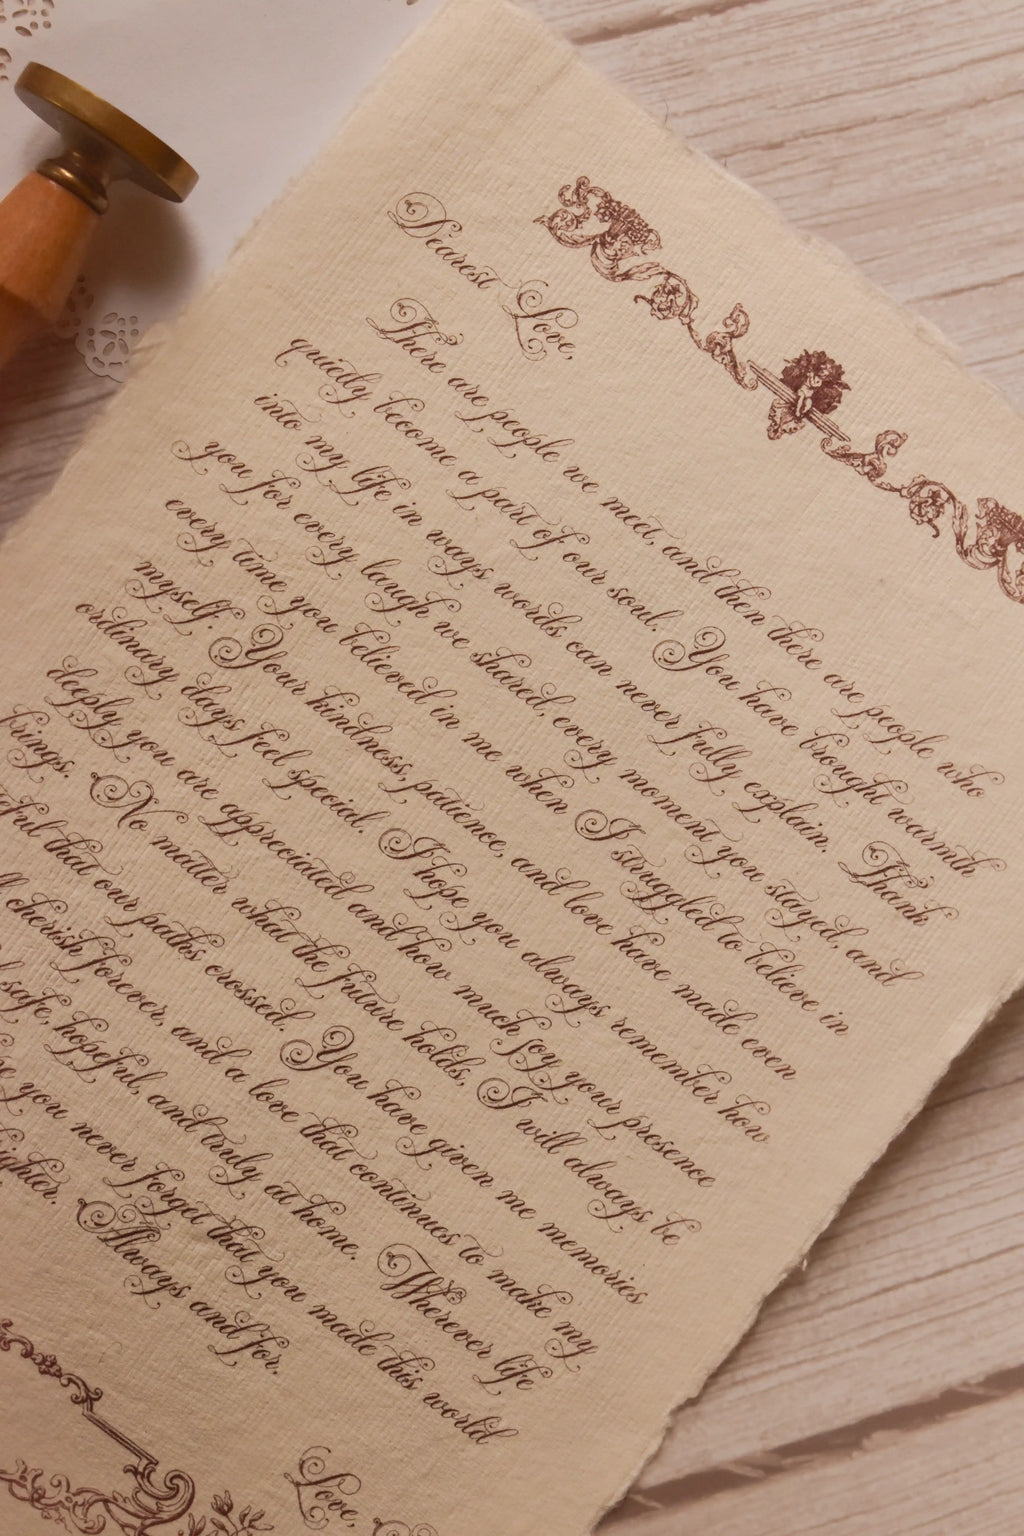 Dearest Love,
There are people we meet, and then there are people who
quietly become a part of our soul. You have brought warmth
into my life in ways words can never fully explain. Thank
you for every laugh we shared, every moment you stayed, and
every time you believed in me when I struggled to believe in
myself. Your kindness, patience, and love have made even
ordinary days feel special. I hope you always remember how
deeply you are appreciated and how much joy your presence
brings. No matter what the future holds, I will always be
that our paths crossed. You have given me memories
cherish forever, and a love that continues to make my
safe, hopeful, and truly at home. Wherever life
you never forget that you made this world
Always and for.
Love,